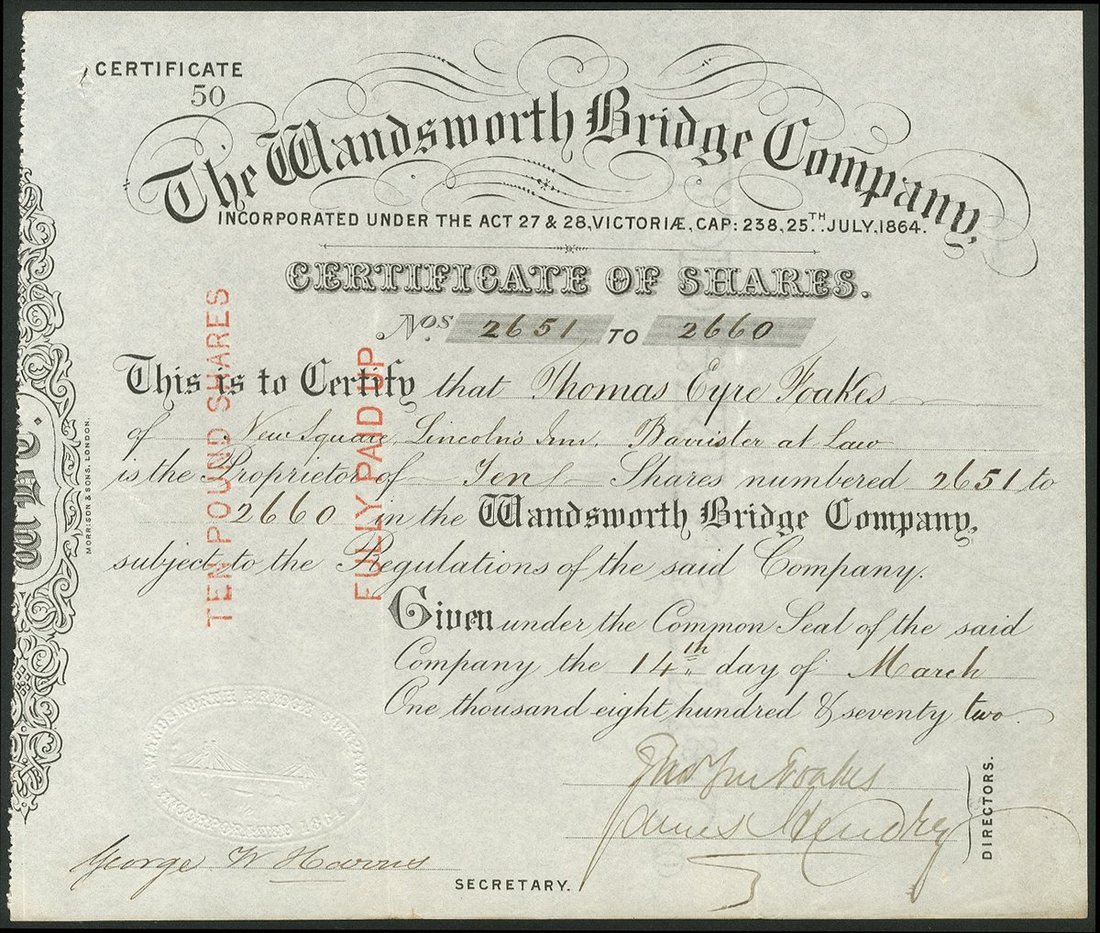 CERTIFICATE
50
The Wandsworth Bridge Company,
INCORPORATED UNDER THE ACT 27 & 28, VICTORIÆ, CAP: 238, 25TH JULY, 1864.
CERTIFICATE OF SHARES.
Nos. 2651 TO 2660
This is to Certify that Thomas Eyre Foakes
of New Square, Lincoln's Inn, Barrister at Law
is the Proprietor of Ten Shares numbered 2651 to
2660 in the Wandsworth Bridge Company,
subject to the Regulations of the said Company.
Given under the Common Seal of the said
Company the 14th day of March
One thousand eight hundred & seventy two.
TEN POUND SHARES
FULLY PAID UP
MORRISON & SONS, LONDON.
WANDSWORTH BRIDGE COMPANY
INCORPORATED 1864
Foakes
James Hendrey
DIRECTORS.
George W Harris
SECRETARY.